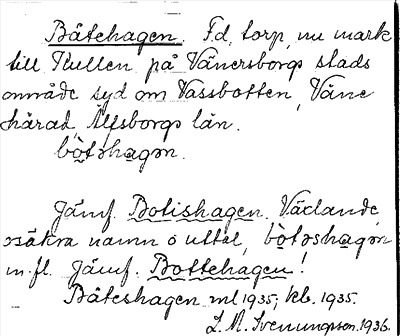 Båtehagen. F.d. torp, nu mark
till Hullen på Vänersborgs stads
område syd om Vassbotten, Väne
härad, Älfsborgs län.
bò̀təshagən.
Jämf. Botishagen. Växlande,
osäkra namn o uttal, bò̀təshagən
m.fl. Jämf. Bottehagen!
Båteshagen ml 1935; kb. 1935.
L. M. Svenungsson. 1936.